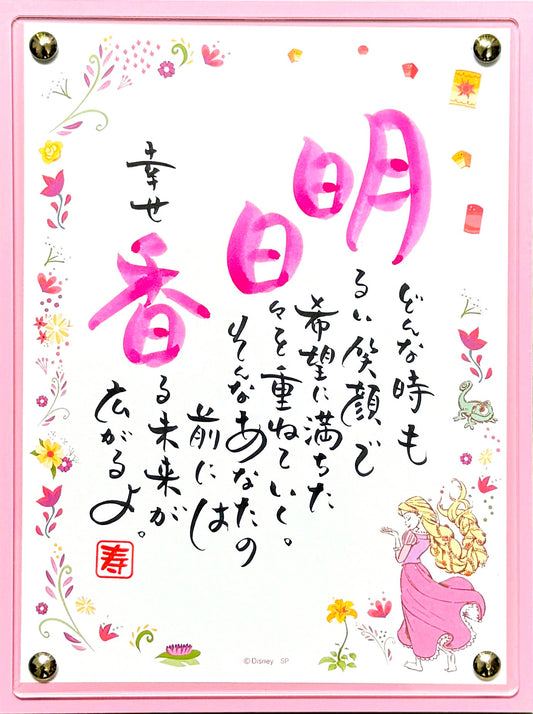 どんな時も
明るい笑顔で
希望に満ちた
日々を重ねていく。
そんなあなたの
前には
幸せ香る未来が
広がるよ。
寿
© Disney SP